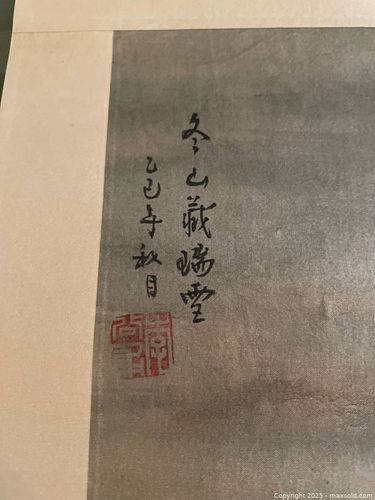 冬山藏瑞雪
乙巳年秋月
Copyright 2025 - maxsold.com